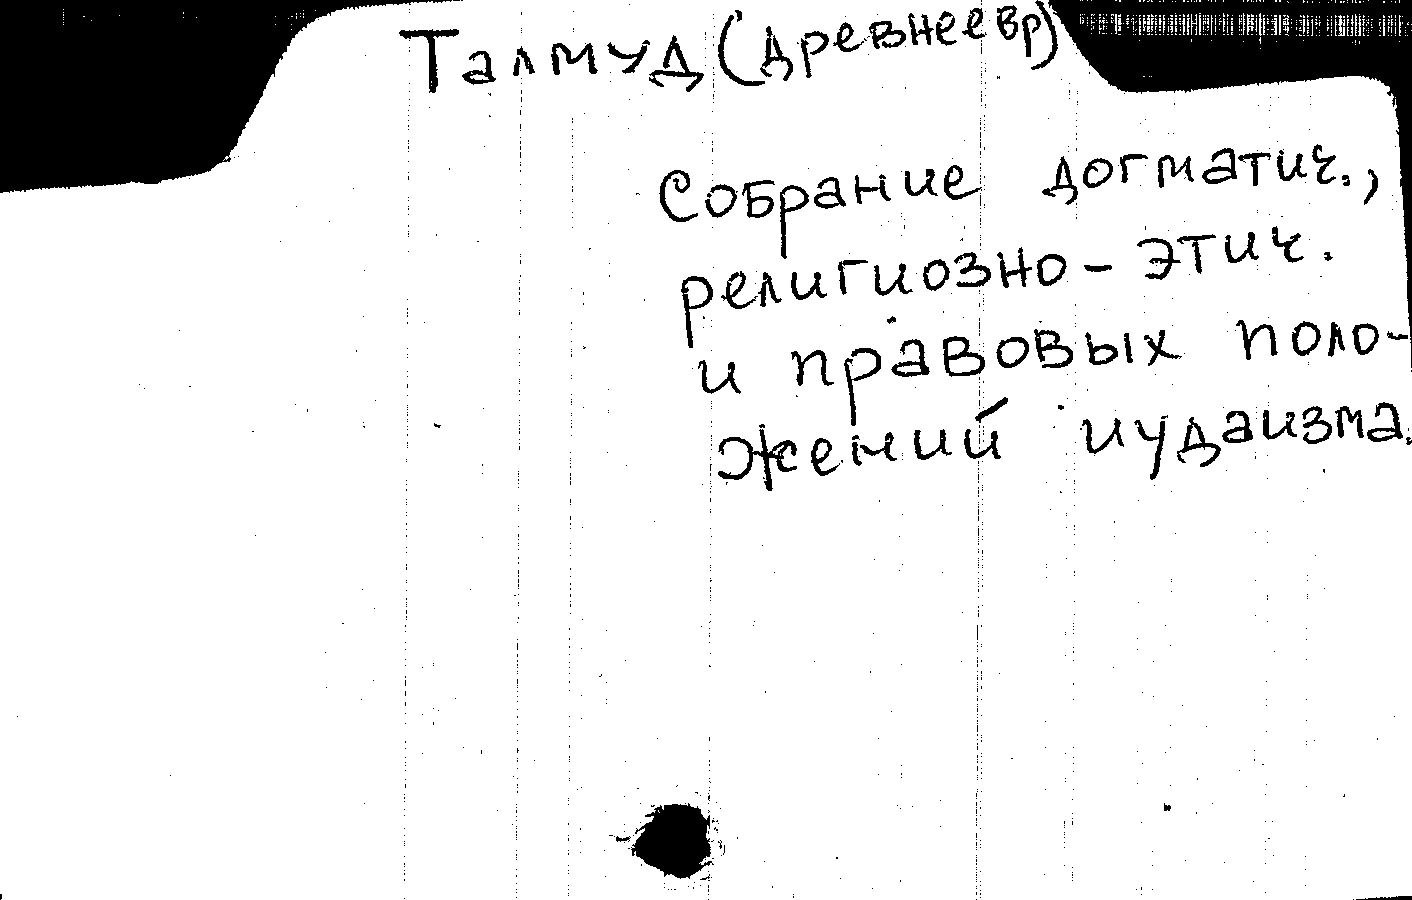 Талмуд (древнеевр)
Собрание догматич.,
религиозно-этич.
и правовых поло-
жений иудаизма.